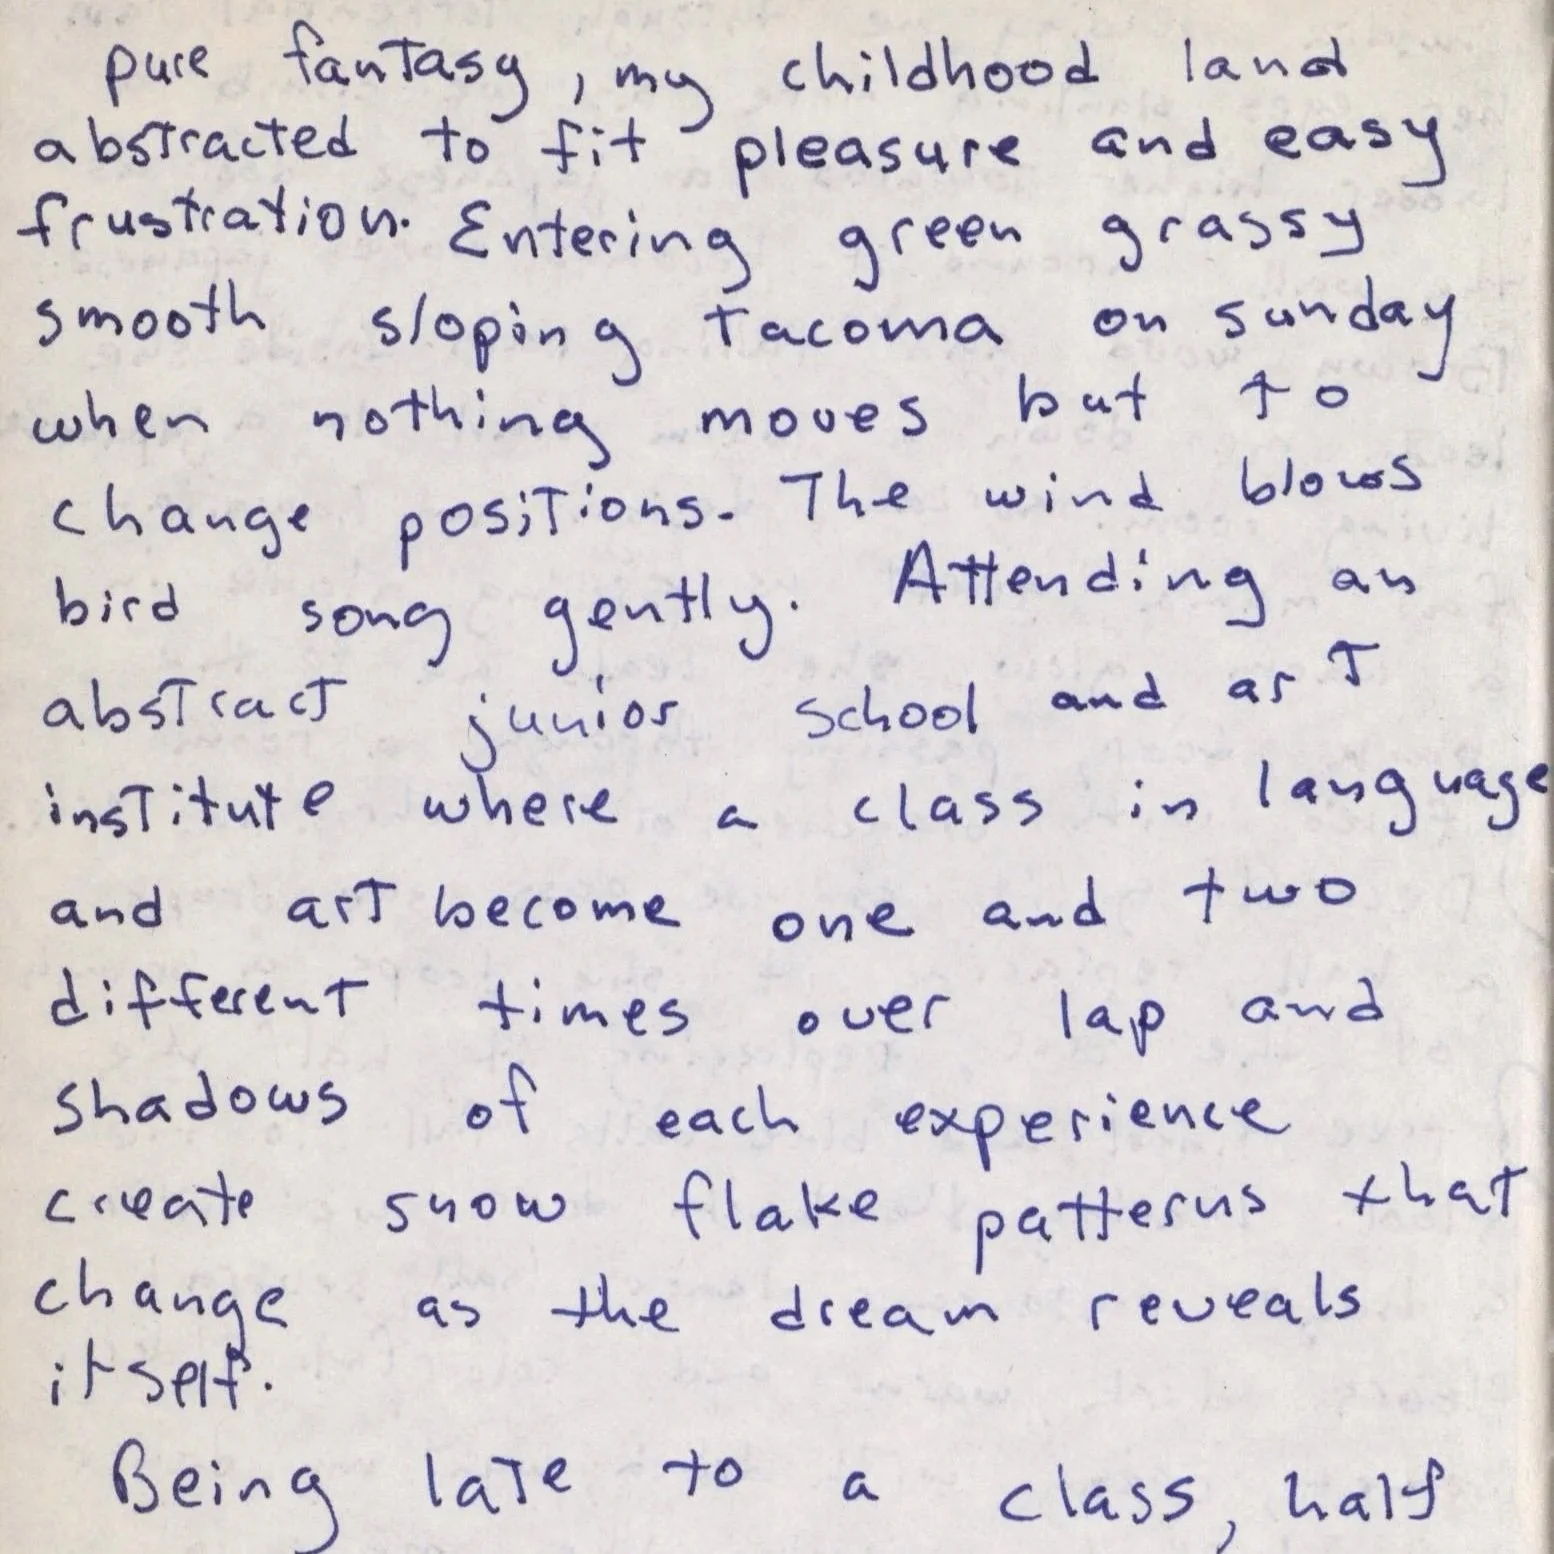 pure fantasy, my childhood land
abstracted to fit pleasure and easy
frustration. Entering green grassy
smooth sloping Tacoma on sunday
when nothing moves but to
change positions. The wind blows
bird song gently. Attending an
abstract junior school and art
institute where a class in language
and art become one and two
different times over lap and
shadows of each experience
create snow flake patterns that
change as the dream reveals
itself.
Being late to a class, half